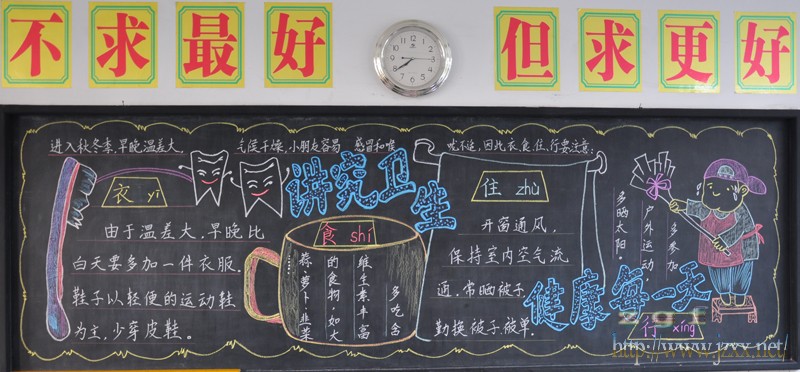 不求最好
但求更好
进入秋冬季,早晚温差大, 气候干燥,小朋友容易 感冒和喉 咙不适,因此衣、食、住、行要注意:
讲究卫生
衣 yī
由于温差大,早晚比
白天要多加一件衣服.
鞋子以轻便的运动鞋
为主,少穿皮鞋。
食 shí
多吃含
维生素丰富
的食物,如大
蒜、萝卜、韭菜
住 zhù
开窗通风,
保持室内空气流
通,常晒被子
勤换被子、被单.
多参加
户外运动,
多晒太阳。
健康每一天
行 xíng